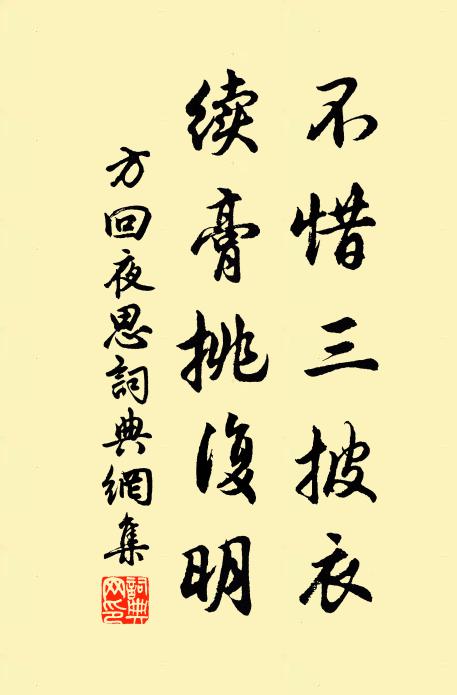 不惜三披衣
续膏挑復明
方回夜思詞典網集
詞典
网印